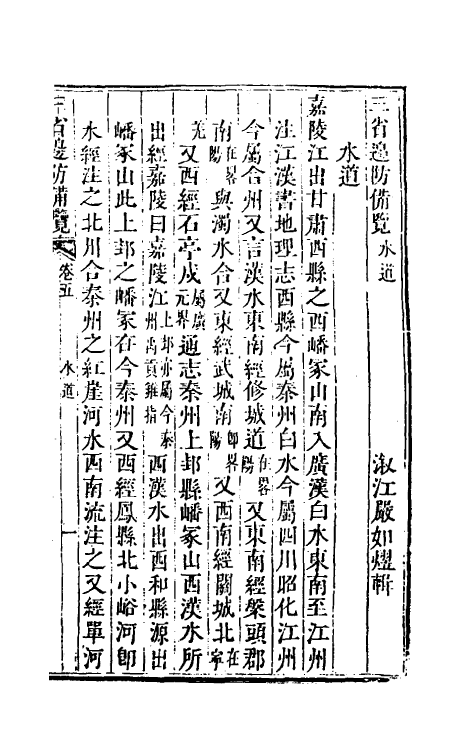 三省邊防備覽 水道 漵江嚴如熤輯
水道
嘉陵江出甘肅西縣之西嶓冢山南入廣漢白水東南至江州
注江漢書地理志西縣今屬秦州白水今屬四川昭化江州
今屬合州又言漢水東南經修城道在畧陽又東南經槃頭郡
南在畧陽與濁水合又東經武城南即畧陽又西南經關城北在寧
羌又西經石亭戍屬廣元界通志秦州上邽縣嶓冢山西漢水所
出經嘉陵曰嘉陵江上邽亦屬今秦州禹貢雍指西漢水出西和縣源出
嶓冢山此上邽之嶓冢在今秦州又西經鳳縣北小峪河即
水經注之北川合秦州之紅崖河水西南流注之又經單河
三省邊防備覽 卷五 水道 一